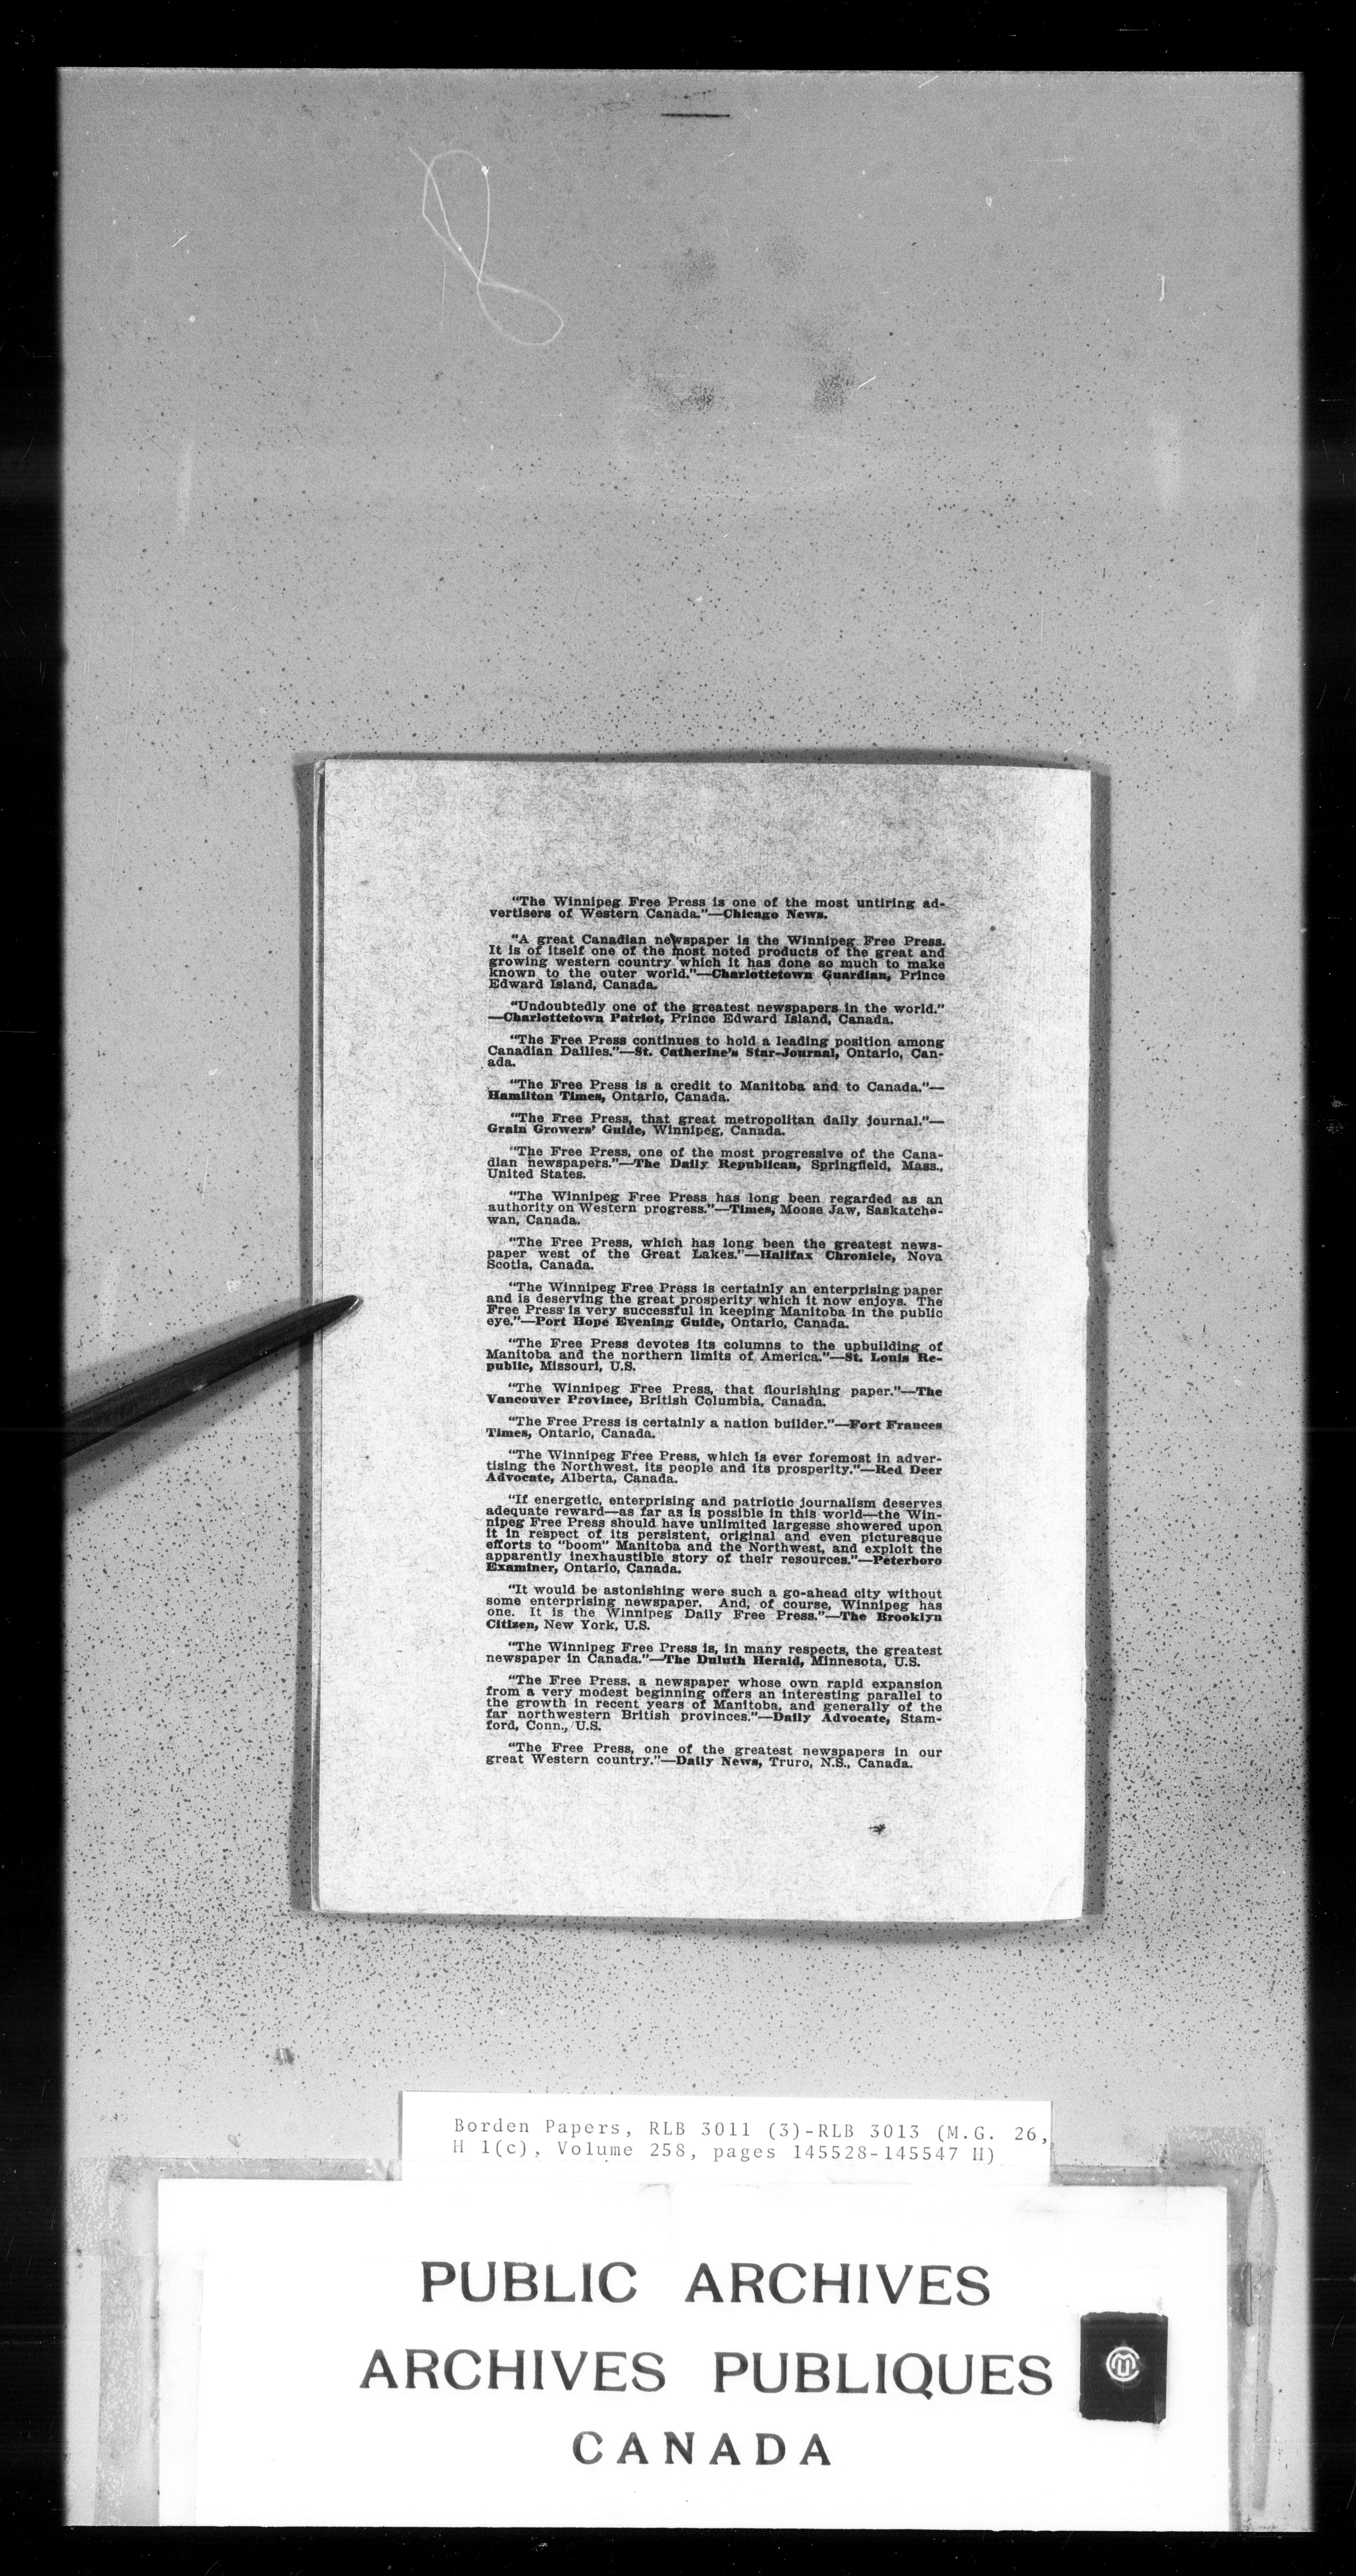 "The Winnipeg Free Press is one of the most untiring ad-
vertisers of Western Canada."—Chicago News.
"A great Canadian newspaper is the Winnipeg Free Press.
It is of itself one of the most noted products of the great and
growing western country which it has done so much to make
known to the outer world."—Charlottetown Guardian, Prince
Edward Island, Canada.
"Undoubtedly one of the greatest newspapers in the world."
—Charlottetown Patriot, Prince Edward Island, Canada.
"The Free Press continues to hold a leading position among
Canadian Dailies."—St. Catherine's Star-Journal, Ontario, Can-
ada.
"The Free Press is a credit to Manitoba and to Canada."—
Hamilton Times, Ontario, Canada.
"The Free Press, that great metropolitan daily journal."—
Grain Growers' Guide, Winnipeg, Canada.
"The Free Press, one of the most progressive of the Cana-
dian newspapers."—The Daily Republican, Springfield, Mass.,
United States.
"The Winnipeg Free Press has long been regarded as an
authority on Western progress."—Times, Moose Jaw, Saskatche-
wan, Canada.
"The Free Press, which has long been the greatest news-
paper west of the Great Lakes."—Halifax Chronicle, Nova
Scotia, Canada.
"The Winnipeg Free Press is certainly an enterprising paper
and is deserving the great prosperity which it now enjoys. The
Free Press is very successful in keeping Manitoba in the public
eye."—Port Hope Evening Guide, Ontario, Canada.
"The Free Press devotes its columns to the upbuilding of
Manitoba and the northern limits of America."—St. Louis Re-
public, Missouri, U.S.
"The Winnipeg Free Press, that flourishing paper."—The
Vancouver Province, British Columbia, Canada.
"The Free Press is certainly a nation builder."—Fort Frances
Times, Ontario, Canada.
"The Winnipeg Free Press, which is ever foremost in adver-
tising the Northwest, its people and its prosperity."—Red Deer
Advocate, Alberta, Canada.
"If energetic, enterprising and patriotic journalism deserves
adequate reward—as far as is possible in this world—the Win-
nipeg Free Press should have unlimited largesse showered upon
it in respect of its persistent, original and even picturesque
efforts to "boom" Manitoba and the Northwest, and exploit the
apparently inexhaustible story of their resources."—Peterboro
Examiner, Ontario, Canada.
"It would be astonishing were such a go-ahead city without
some enterprising newspaper. And, of course, Winnipeg has
one. It is the Winnipeg Daily Free Press."—The Brooklyn
Citizen, New York, U.S.
"The Winnipeg Free Press is, in many respects, the greatest
newspaper in Canada."—The Duluth Herald, Minnesota, U.S.
"The Free Press, a newspaper whose own rapid expansion
from a very modest beginning offers an interesting parallel to
the growth in recent years of Manitoba, and generally of the
far northwestern British provinces."—Daily Advocate, Stam-
ford, Conn., U.S.
"The Free Press, one of the greatest newspapers in our
great Western country."—Daily News, Truro, N.S., Canada.
Borden Papers, RLB 3011 (3)-RLB 3013 (M.G. 26,
H 1(c), Volume 258, pages 145528-145547 H)
PUBLIC ARCHIVES
ARCHIVES PUBLIQUES
CANADA